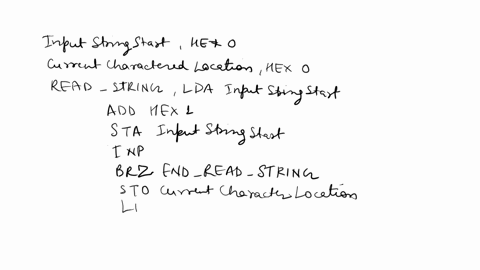 Input StringStart , HEX 0
Current Charactered Location, HEX 0
READ_STRING , LDA Input StringStart
ADD HEX 1
STA Input StringStart
INP
BRZ END_READ_STRING
STO Current Character Location
LI